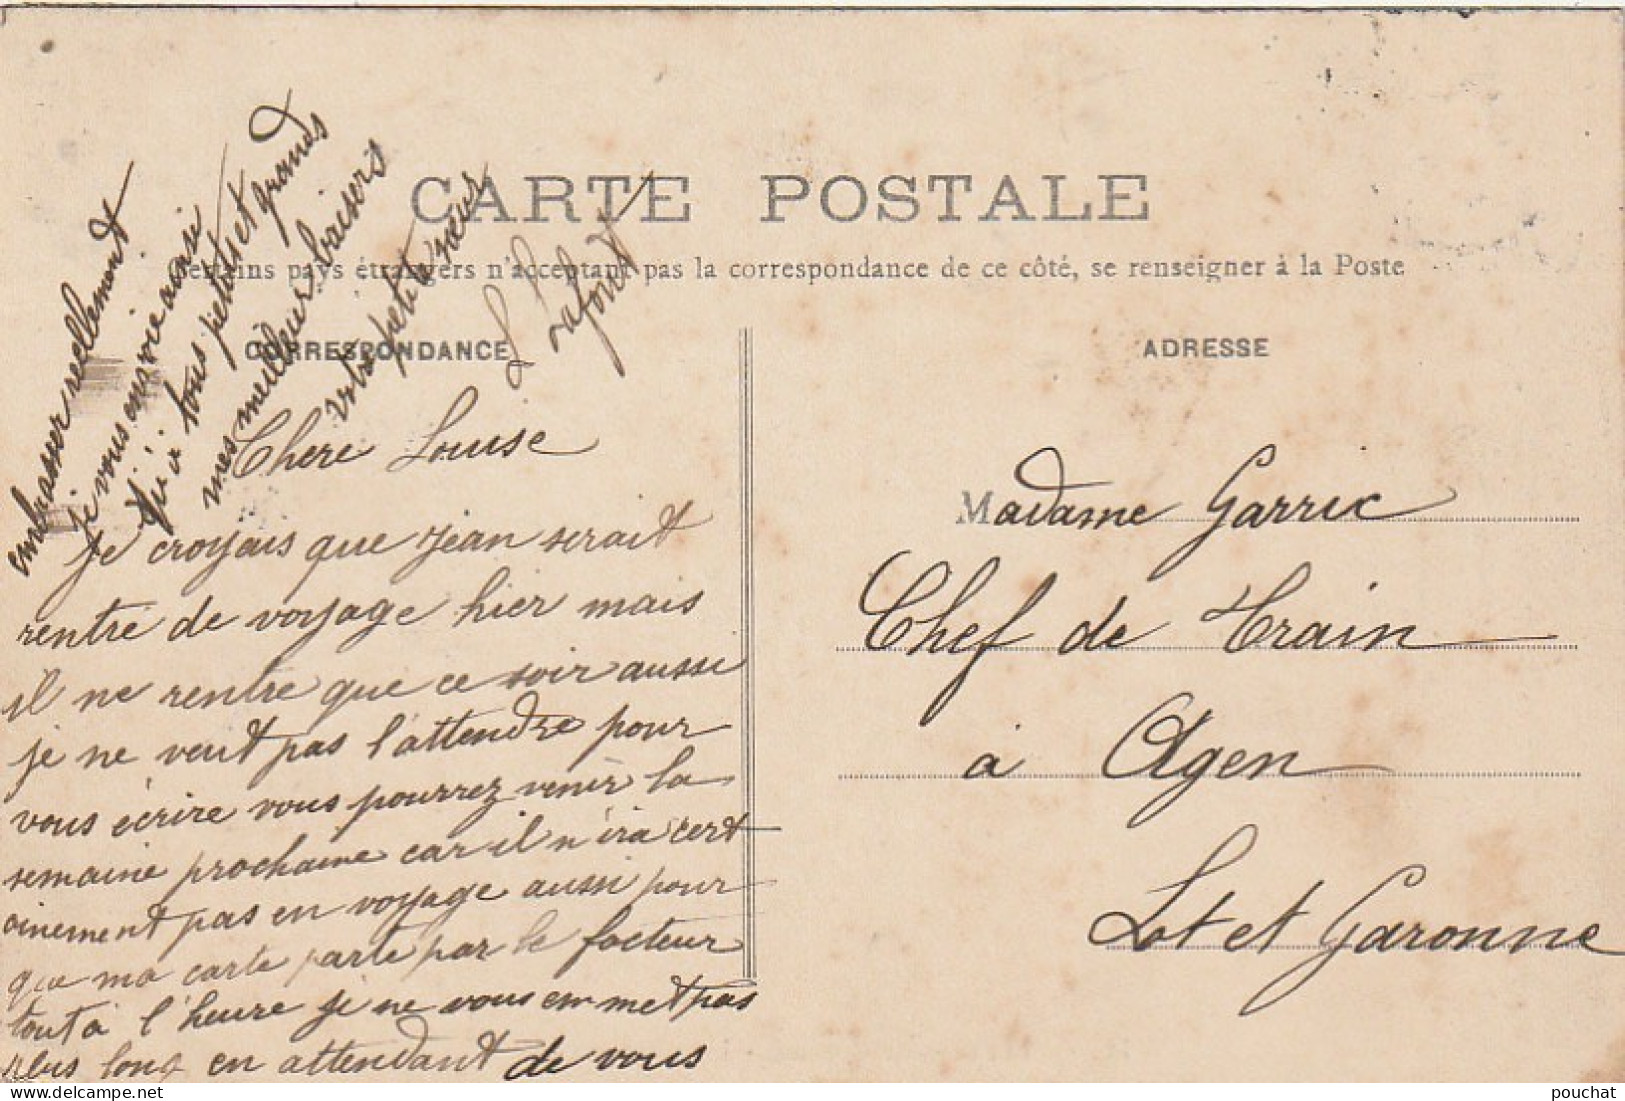 CARTE POSTALE
Certains pays étrangers n'acceptent pas la correspondance de ce côté, se renseigner à la Poste
CORRESPONDANCE
Chere Louise
Je croyais que Jean serait
rentré de voyage hier mais
il ne rentre que ce soir aussi
je ne veut pas l'attendre pour
vous écrire vous pourrez venir la
semaine prochaine car il n'ira cert
ainement pas en voyage aussi pour
que ma carte parte par le facteur
tout à l'heure je ne vous en met pas
plus long en attendant de vous
embrasser reellement
Je vous envoie ainsi
qu'à tous petits et grands
mes meilleur baisers
votre petite sœur
L Lafont
ADRESSE
Madame Garric
Chef de Train
à Agen
Lot et Garonne
pouchat